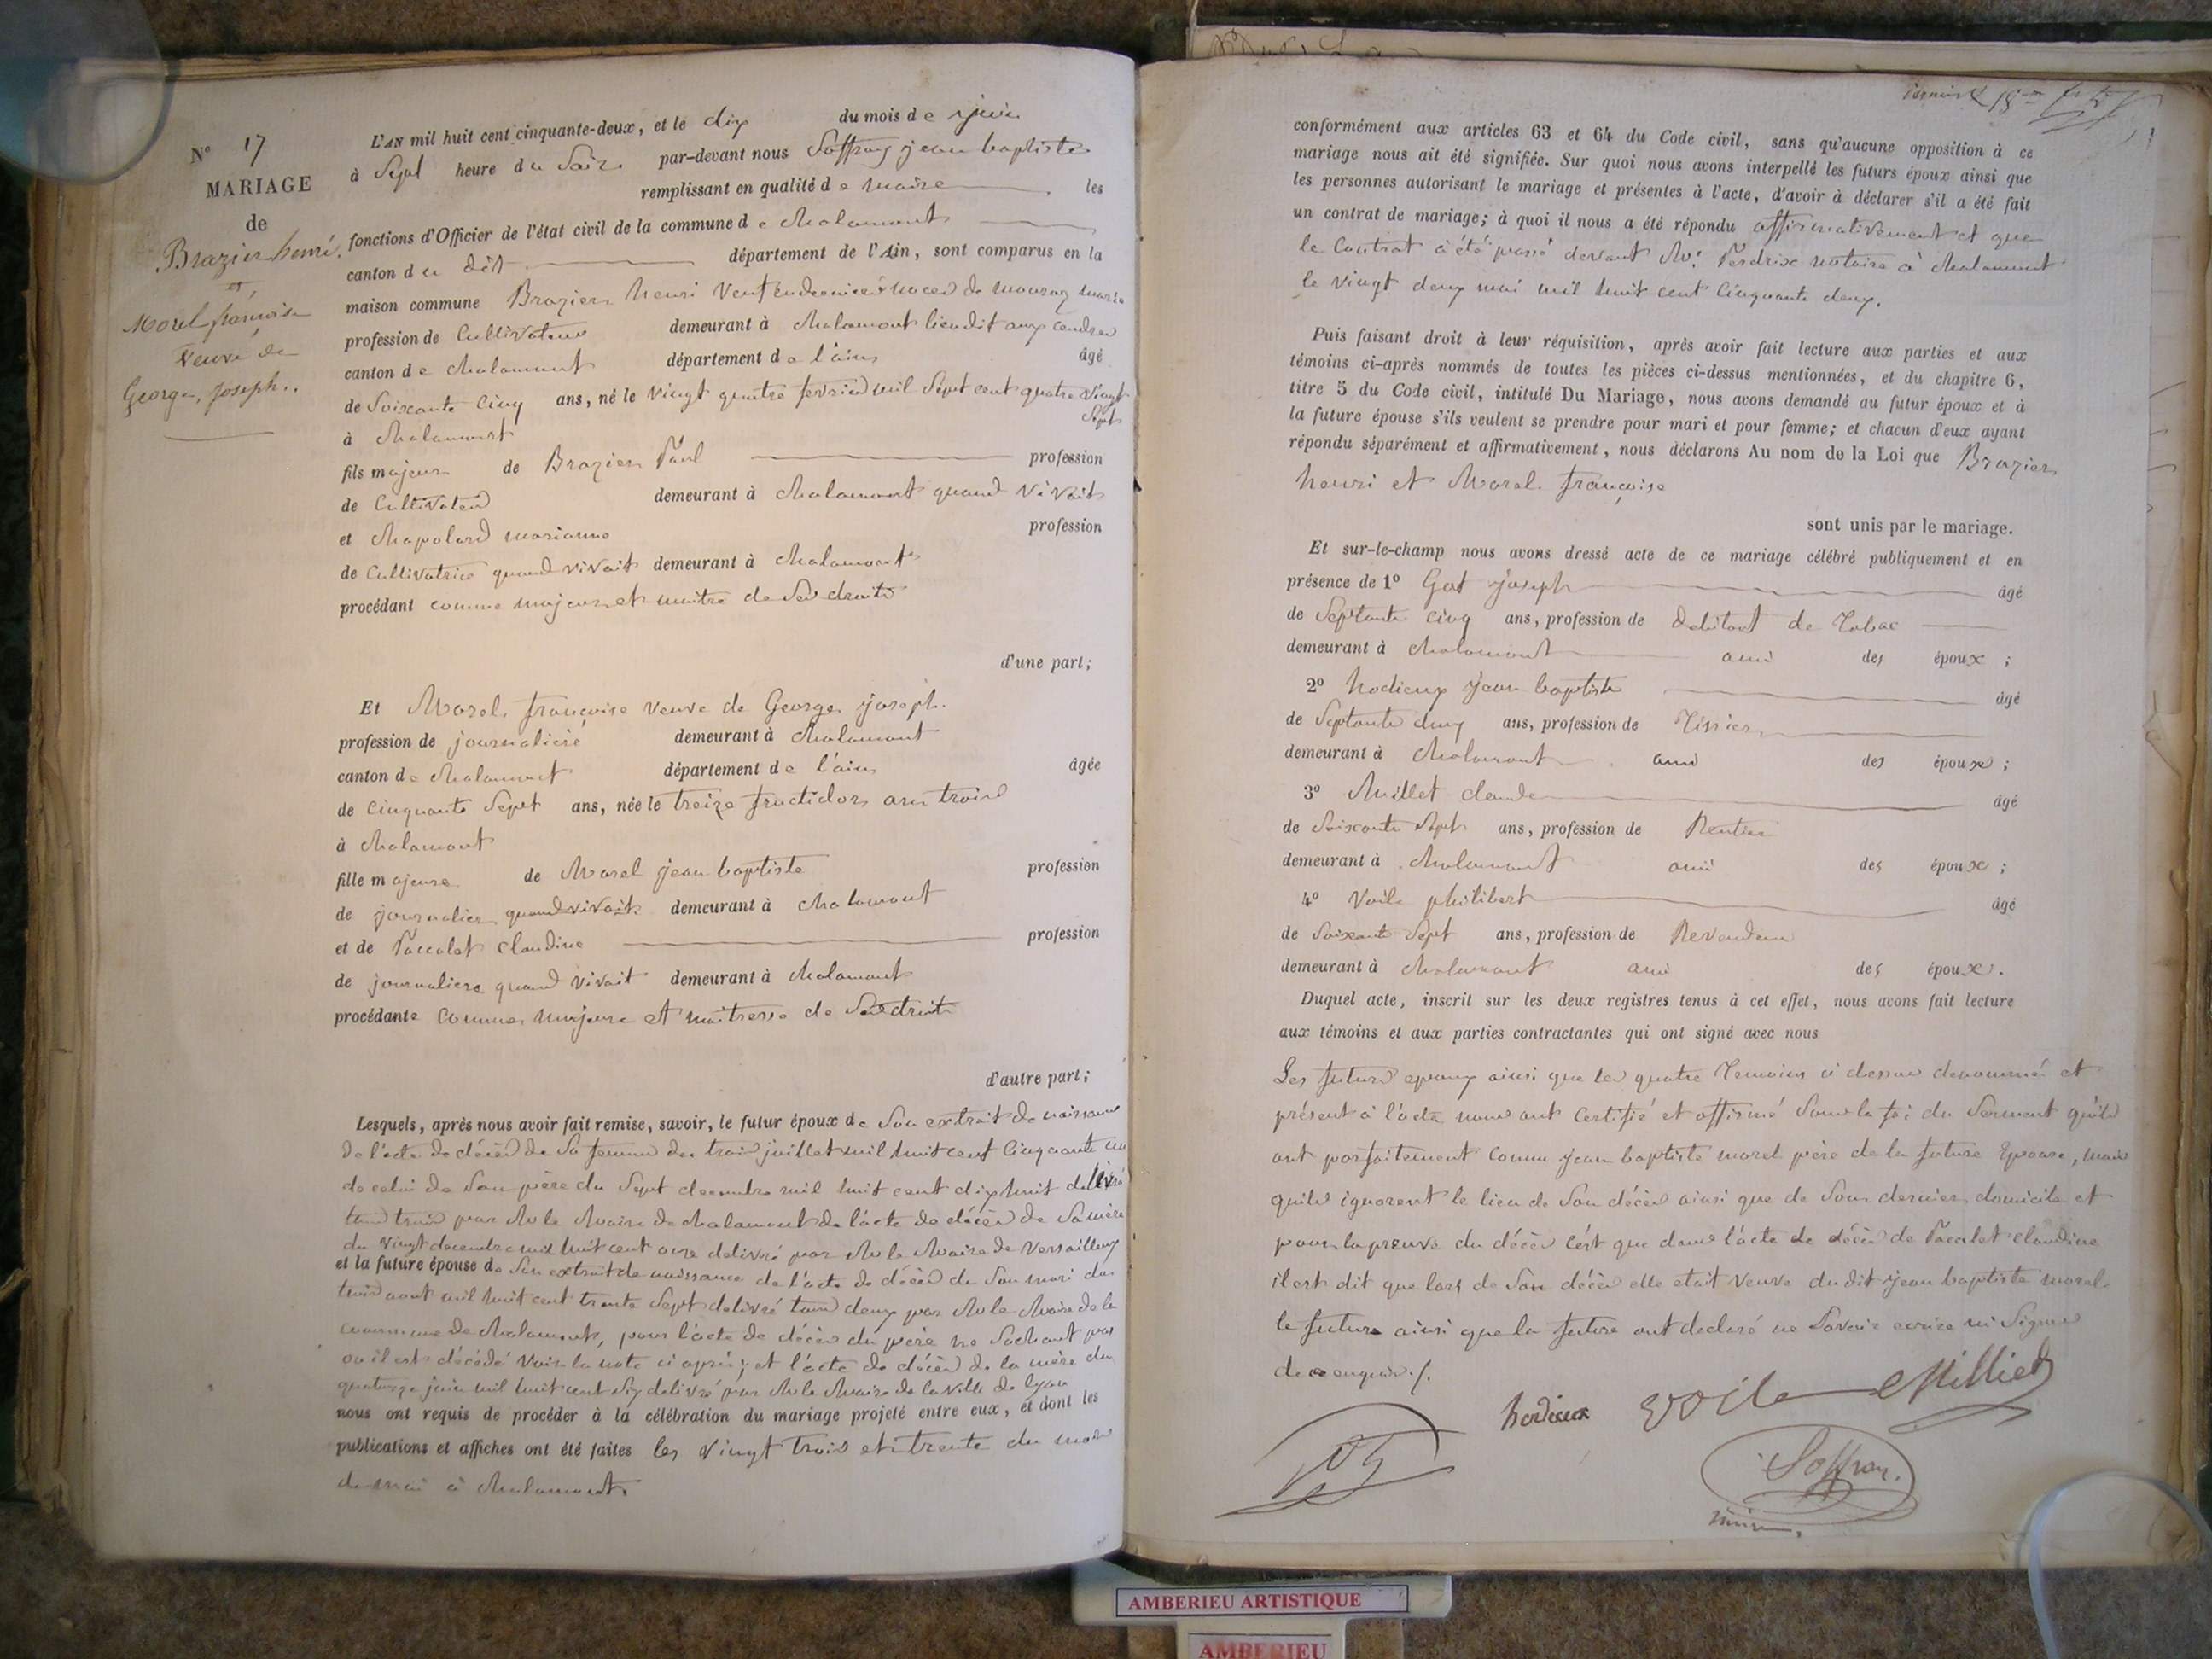 N° 17
MARIAGE
de
Brazier henri
et
Morel françoise
veuve de
George, Joseph..
L'AN mil huit cent cinquante-deux, et le dix du mois de juin
à Sept heure du Soir par-devant nous Soffray jean baptiste
remplissant en qualité de maire les
fonctions d'Officier de l'état civil de la commune de chalamont
canton du dit département de l'Ain, sont comparus en la
maison commune Brazier henri Veuf en dernières noces de mouray marie
profession de Cultivateur demeurant à chalamont lieu dit aux
canton de chalamont département de l'ain âgé
de Soixante cinq ans, né le vingt quatre février mil Sept cent quatre vingt
Sept
à chalamont
fils majeur de Brazier Paul profession
de Cultivateur demeurant à chalamont quand vivait
et chapolard marianne profession
de Cultivatrice quand vivait demeurant à chalamont
procédant comme majeur et maitre de Ses droits
d'une part;
Et Morel françoise veuve de George joseph.
profession de journalière demeurant à chalamont
canton de chalamont département de l'ain âgée
de cinquante Sept ans, née le treize fructidor an trois
à chalamont
fille majeure de Morel jean baptiste profession
de journalier quand vivait demeurant à chalamont
et de Paccalet claudine profession
de journaliere quand vivait demeurant à chalamont
procédante comme majeure et maitresse de Ses droits
d'autre part;
Lesquels, après nous avoir fait remise, savoir, le futur époux de Son extrait de naissance
de l'acte de décès de Sa femme du trois juillet mil huit cent cinquante un
de celui de Son père du Sept decembre mil huit cent dix huit délivré
tous trois par Mr le Maire de chalamont de l'acte de décès de Sa mère
du vingt decembre mil huit cent onze delivré par Mr le Maire de Versailleux
et la future épouse de Son extrait de naissance de l'acte de décès de Son mari du
trois aout mil huit cent trente Sept delivré tous deux par Mr le Maire de la
commune de chalamont, pour l'acte de décès du père ne Sachant pas
ou il est décédé voir la note ci après; et l'acte de décès de la mère du
quatorze juin mil huit cent six delivré par Mr le Maire de la ville de lyon
nous ont requis de procéder à la célébration du mariage projeté entre eux, et dont les
publications et affiches ont été faites les vingt trois et trente du mois
de mai à chalamont.
conformément aux articles 63 et 64 du Code civil, sans qu'aucune opposition à ce
mariage nous ait été signifiée. Sur quoi nous avons interpellé les futurs époux ainsi que
les personnes autorisant le mariage et présentes à l'acte, d'avoir à déclarer s'il a été fait
un contrat de mariage; à quoi il nous a été répondu affirmativement et que
le Contrat a été passé devant Me Perdrix notaire à chalamont
le vingt deux mai mil huit cent cinquante deux.
Puis faisant droit à leur réquisition, après avoir fait lecture aux parties et aux
témoins ci-après nommés de toutes les pièces ci-dessus mentionnées, et du chapitre 6,
titre 5 du Code civil, intitulé Du Mariage, nous avons demandé au futur époux et à
la future épouse s'ils veulent se prendre pour mari et pour femme; et chacun d'eux ayant
répondu séparément et affirmativement, nous déclarons Au nom de la Loi que Brazier
henri et Morel françoise
sont unis par le mariage.
Et sur-le-champ nous avons dressé acte de ce mariage célébré publiquement et en
présence de 1° Gat joseph âgé
de Septante cinq ans, profession de debitant de Tabac
demeurant à chalamont ami des époux ;
2° hodieux jean baptiste âgé
de Septante deux ans, profession de Tissier
demeurant à chalamont ami des époux ;
3° Millet claude âgé
de Soixante Sept ans, profession de Rentier
demeurant à chalamont ami des époux ;
4° Voile philibert âgé
de Soixante Sept ans, profession de Revendeur
demeurant à chalamont ami des époux.
Duquel acte, inscrit sur les deux registres tenus à cet effet, nous avons fait lecture
aux témoins et aux parties contractantes qui ont signé avec nous
Les futurs epoux ainsi que les quatre Temoins ci dessus denommés et
présent à l'acte nous ont certifié et affirmé Sous la foi du Serment quils
ont parfaitement connu jean baptiste morel père de la future Epouse, mais
quils ignorent le lieu de Son décès ainsi que de Son dernier domicile et
pour la preuve du décès c'est que dans l'acte de décès de Paccalet claudine
il est dit que lors de Son décès elle etait veuve du dit jean baptiste morel.
le futur ainsi que la future ont declaré ne Savoir ecrire ni Signer
de ce enquis./.
hodieux voile Milliet
Soffray.
maire
AMBERIEU ARTISTIQUE
AMBERIEU